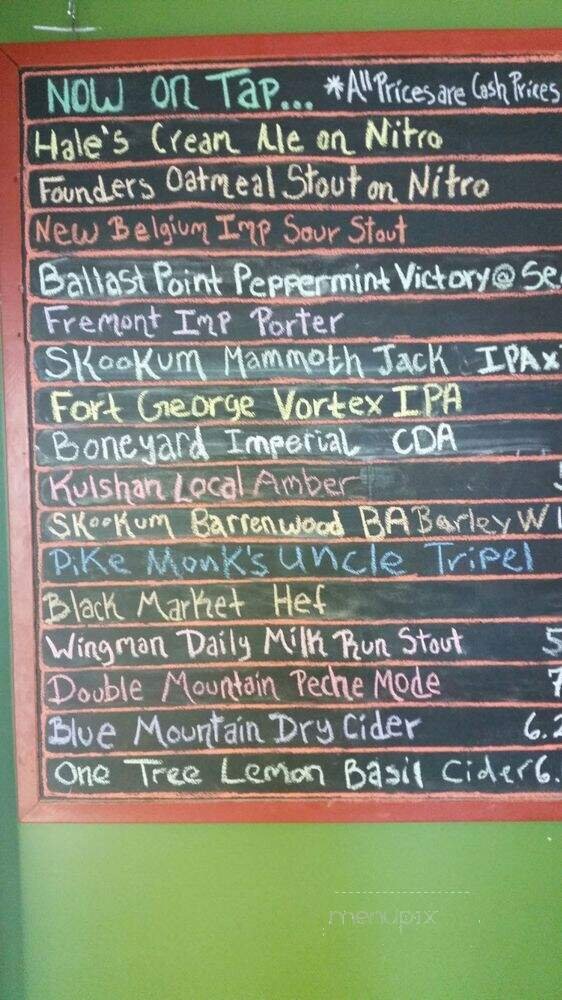 Now on Tap... *All Prices are Cash Prices
Hale's Cream Ale on Nitro
Founders Oatmeal Stout on Nitro
New Belgium Imp Sour Stout
Ballast Point Peppermint Victory@ Se
Fremont Imp Porter
Skookum Mammoth Jack IPAx
Fort George Vortex IPA
Boneyard Imperial CDA
Kulshan Local Amber
Skookum Barrenwood BA Barley W
Pike Monk's Uncle Tripel
Black Market Hef
Wingman Daily Milk Run Stout 5
Double Mountain Peche Mode 7
Blue Mountain Dry Cider 6.2
One Tree Lemon Basil Cider 6.
menupix